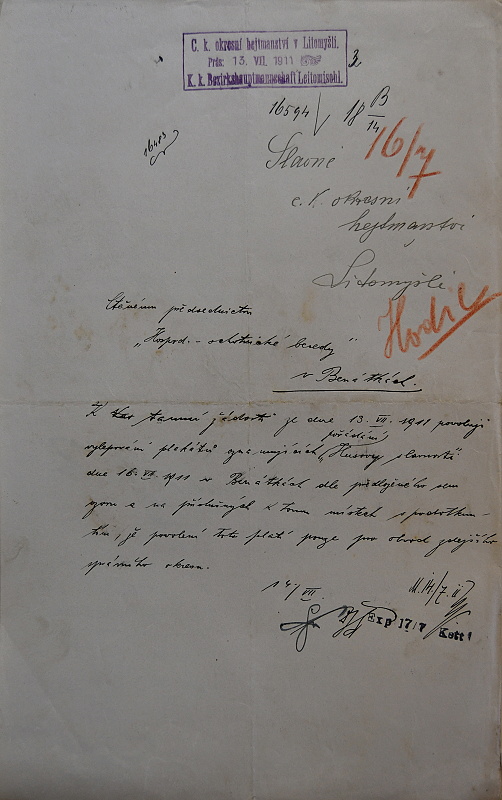 C. k. okresní hejtmanství v Litomyšli.
Präs: 13. VII. 1911
K. k. Bezirkshauptmannschaft Leitomischl.
3.
16594 18 B/14
16483
16/7
Slavné
c. k. okresní
hejtmanství
Litomyšli
Hodic
Ctěnému předsednictvu
„Hospod. - ochotnické besedy"
v Benátkách.
K tamní žádosti je dne 13. VII. 1911 povoluji
pořádání
vylepování plakátů oznamujících „Husovy slavnosti
dne 16. VII 1911 v Benátkách dle předloženého sem
a na příslušných k tomu místech s podotknu-
tím, že povolení toto platí pouze pro obvod zdejšího
správního okresu.
14/VII
Exp 17/7 Kott